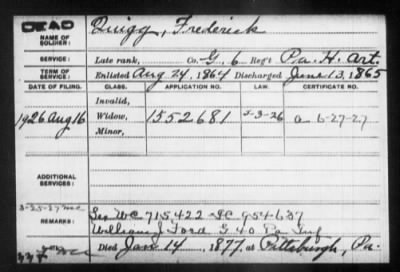 DEAD
NAME OF SOLDIER: Quigg, Frederick
SERVICE: Late rank, Co. G, 6 Reg't Pa. H. Art.
TERM OF SERVICE: Enlisted Aug 24, 1864 Discharged June 13, 1865
DATE OF FILING. CLASS. APPLICATION NO. LAW. CERTIFICATE NO.
Invalid,
1926 Aug 16 Widow, 1552681 5-3-26 a 6-27-27
Minor,
ADDITIONAL SERVICES:
3-25-27
REMARKS: See WC 715,422 IC 954637
William J Ford G 40 Pa Inf
Died Jan 14, 1877, at Pittsburgh, Pa.